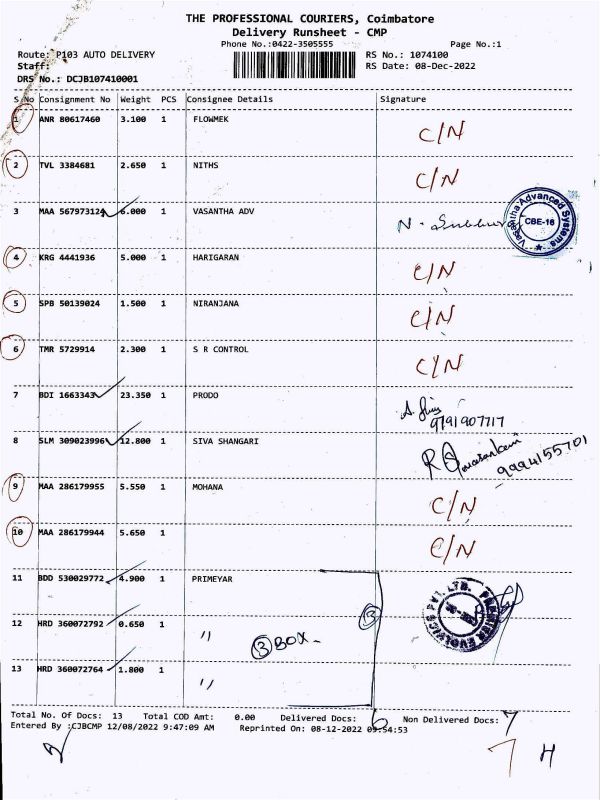 THE PROFESSIONAL COURIERS, Coimbatore
Delivery Runsheet - CMP
Phone No.:0422-3505555 Page No.:1
Route: P103 AUTO DELIVERY RS No.: 1074100
Staff: RS Date: 08-Dec-2022
DRS No.: DCJB107410001
S No Consignment No Weight PCS Consignee Details Signature
1 ANR 80617460 3.100 1 FLOWMEK C/N
2 TVL 3384681 2.650 1 NITHS C/N
3 MAA 567973124 6.000 1 VASANTHA ADV N.
Vasantha Advanced Systems CBE-16
4 KRG 4441936 5.000 1 HARIGARAN C/N
5 SPB 50139024 1.500 1 NIRANJANA C/N
6 TMR 5729914 2.300 1 S R CONTROL C/N
7 BDI 1663343 23.350 1 PRODO
9791907717
8 SLM 309023996 12.800 1 SIVA SHANGARI
9994155701
9 MAA 286179955 5.550 1 MOHANA C/N
10 MAA 286179944 5.650 1 C/N
11 BDD 530029772 4.900 1 PRIMEYAR
PREMIER EVOLVICS PVT. LTD.
12 HRD 360072792 0.650 1 " 3 BOX 13
13 HRD 360072764 1.800 1 "
Total No. Of Docs: 13 Total COD Amt: 0.00 Delivered Docs: 6 Non Delivered Docs: 7
Entered By :CJBCMP 12/08/2022 9:47:09 AM Reprinted On: 08-12-2022 09:54:53
7 H